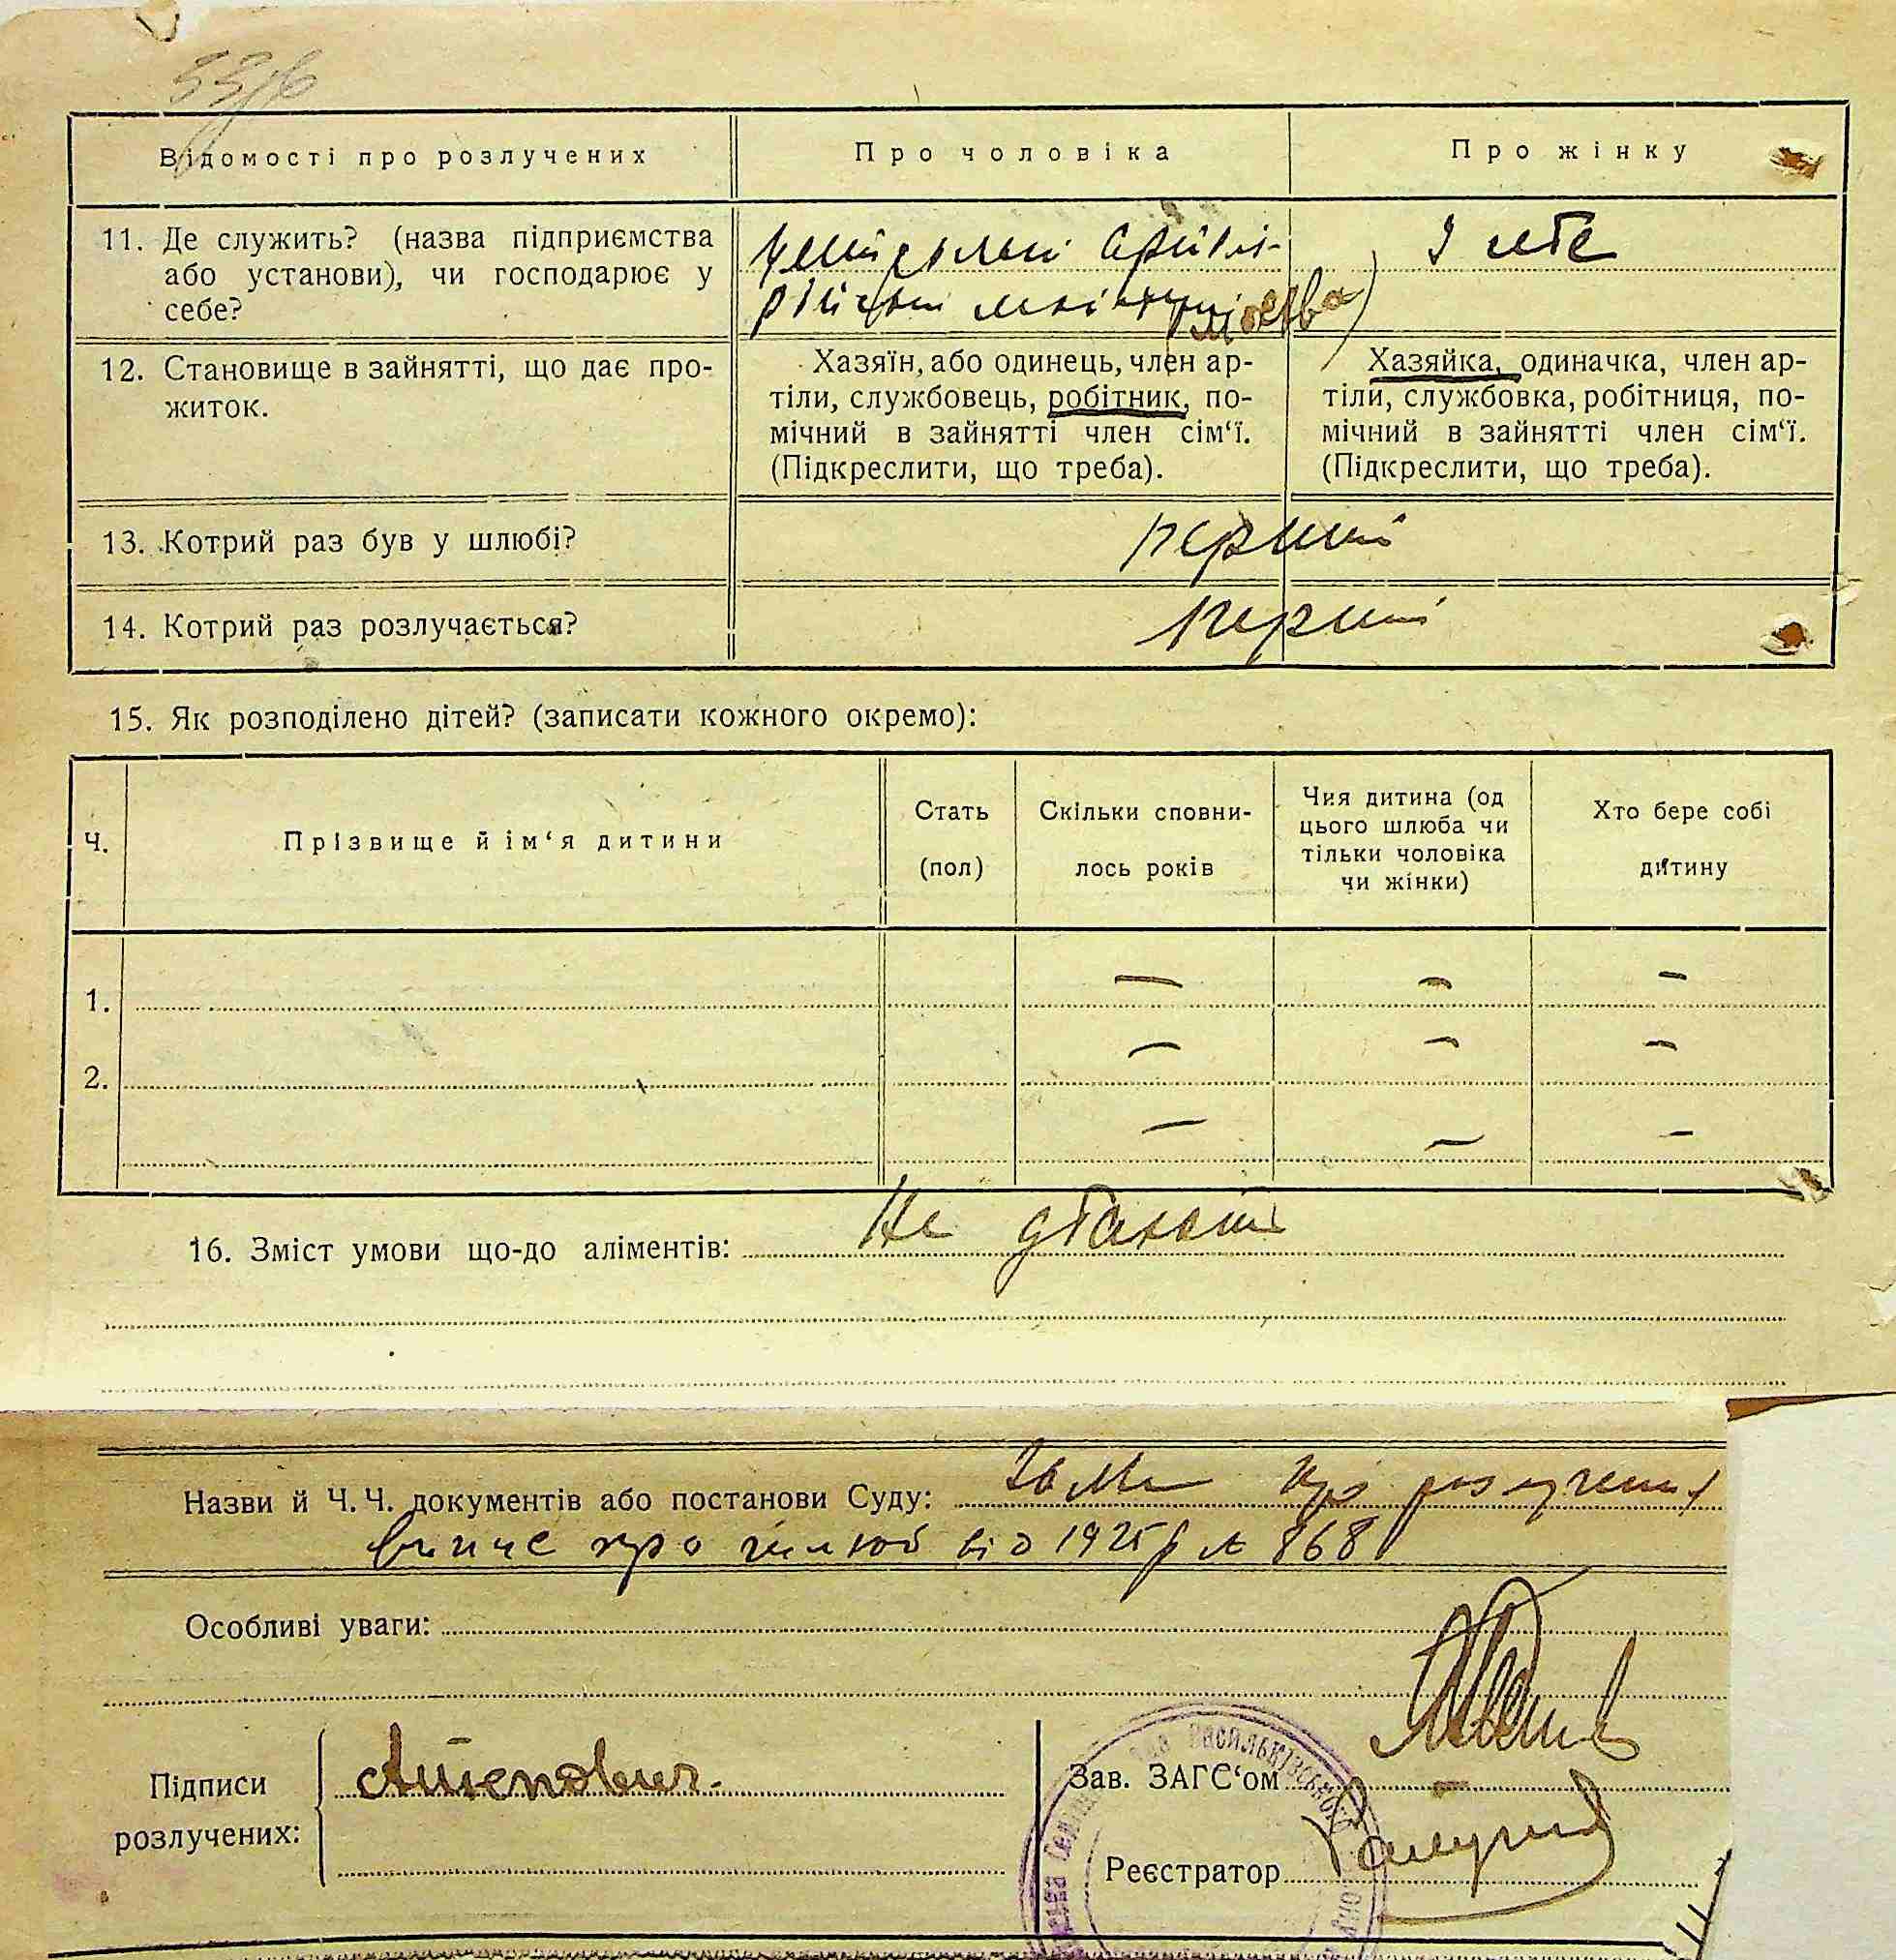 Відомості про розлучених
Про чоловіка
Про жінку
11. Де служить? (назва підприємства
або установи), чи господарює у
себе?
У себе
12. Становище в зайнятті, що дає про-
житок.
Хазяїн, або одинець, член ар-
тіли, службовець, робітник, по-
мічний в зайнятті член сім‘ї.
(Підкреслити, що треба).
Хазяйка, одиначка, член ар-
тіли, службовка, робітниця, по-
мічний в зайнятті член сім‘ї.
(Підкреслити, що треба).
13. Котрий раз був у шлюбі?
перший
14. Котрий раз розлучається?
перший
15. Як розподілено дітей? (записати кожного окремо):
Ч.
Прізвище й ім‘я дитини
Стать
(пол)
Скільки сповни-
лось років
Чия дитина (од
цього шлюба чи
тільки чоловіка
чи жінки)
Хто бере собі
дитину
1.
— — —
2.
— — —
— — —
16. Зміст умови що-до аліментів: Не
Назви й Ч. Ч. документів або постанови Суду: про
про шлюб від 1925 р № 868
Особливі уваги:
Підписи
розлучених:
Зав. ЗАГС‘ом
Реєстратор